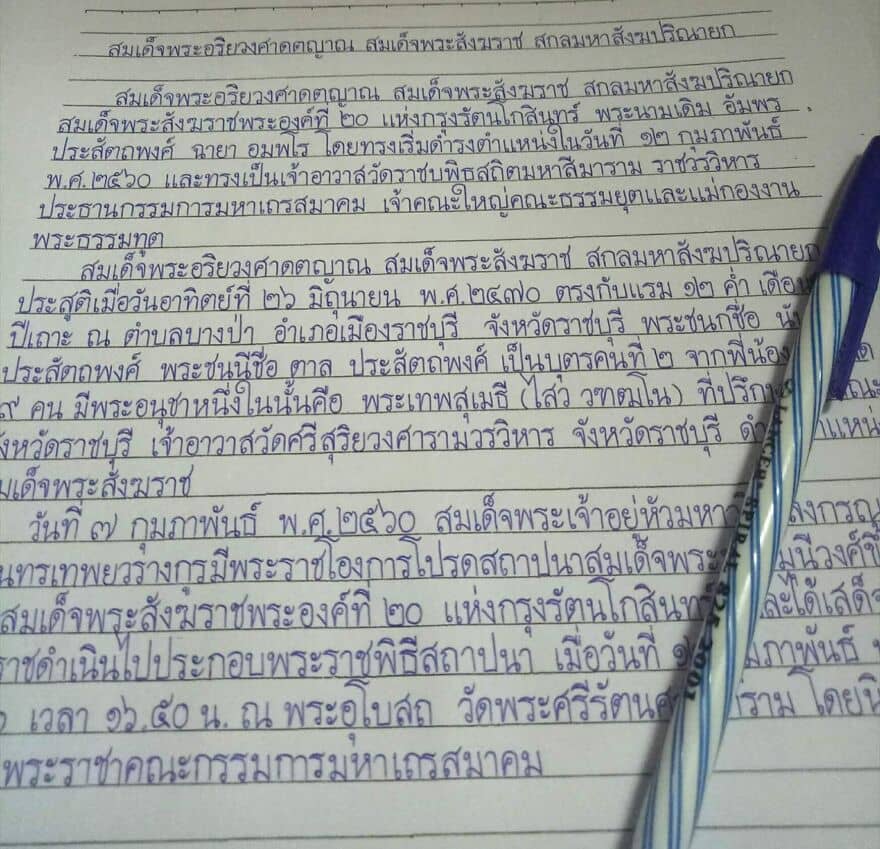 สมเด็จพระอริยวงศาคตญาณ สมเด็จพระสังฆราช สกลมหาสังฆปริณายก
สมเด็จพระอริยวงศาคตญาณ สมเด็จพระสังฆราช สกลมหาสังฆปริณายก
สมเด็จพระสังฆราชพระองค์ที่ ๒๐ แห่งกรุงรัตนโกสินทร์ พระนามเดิม อัมพร
ประสัตถพงศ์ ฉายา อมฺพโร โดยทรงเริ่มดำรงตำแหน่งในวันที่ ๑๒ กุมภาพันธ์
พ.ศ.๒๕๖๐ และทรงเป็นเจ้าอาวาสวัดราชบพิธสถิตมหาสีมาราม ราชวรวิหาร
ประธานกรรมการมหาเถรสมาคม เจ้าคณะใหญ่คณะธรรมยุตและแม่กองงาน
พระธรรมทูต
สมเด็จพระอริยวงศาคตญาณ สมเด็จพระสังฆราช สกลมหาสังฆปริณายก
ประสูติเมื่อวันอาทิตย์ที่ ๒๖ มิถุนายน พ.ศ.๒๔๗๐ ตรงกับแรม ๑๒ ค่ำ เดือน
ปีเถาะ ณ ตำบลบางป่า อำเภอเมืองราชบุรี จังหวัดราชบุรี พระชนกชื่อ
ประสัตถพงศ์ พระชนนีชื่อ ตาล ประสัตถพงศ์ เป็นบุตรคนที่ ๒ จากพี่น้อง
๙ คน มีพระอนุชาหนึ่งในนั้นคือ พระเทพสุเมธี (ไสว วฑฺฒโน) ที่ปรึกษา
จังหวัดราชบุรี เจ้าอาวาสวัดศรีสุริยวงศารามวรวิหาร จังหวัดราชบุรี
มเด็จพระสังฆราช
วันที่ ๗ กุมภาพันธ์ พ.ศ.๒๕๖๐ สมเด็จพระเจ้าอยู่หัวมหา ลงกรณ
นทรเทพยวรางกูรมีพระราชโองการโปรดสถาปนาสมเด็จพระ มุนีวงศ์ขึ้
สมเด็จพระสังฆราชพระองค์ที่ ๒๐ แห่งกรุงรัตนโกสินทร์ และได้เสด็จ
ราชดำเนินไปประกอบพระราชพิธีสถาปนา เมื่อวันที่ มภาพันธ์
เวลา ๑๖.๕๐ น. ณ พระอุโบสถ วัดพระศรีรัตนศ าราม โดย
พระราชาคณะกรรมการมหาเถรสมาคม